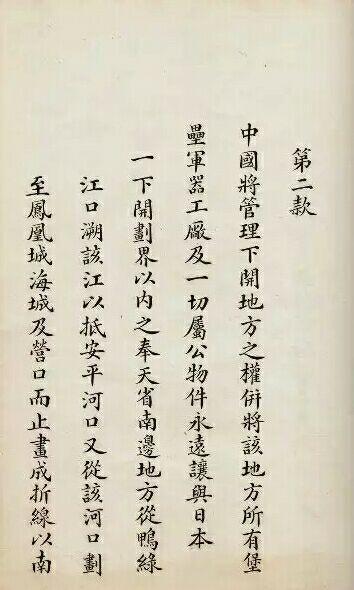 第二款
中國將管理下開地方之權併將該地方所有堡
壘軍器工厰及一切屬公物件永遠讓與日本
一下開劃界以內之奉天省南邊地方從鴨綠
江口溯該江以抵安平河口又從該河口劃
至鳳凰城海城及營口而止畫成折線以南